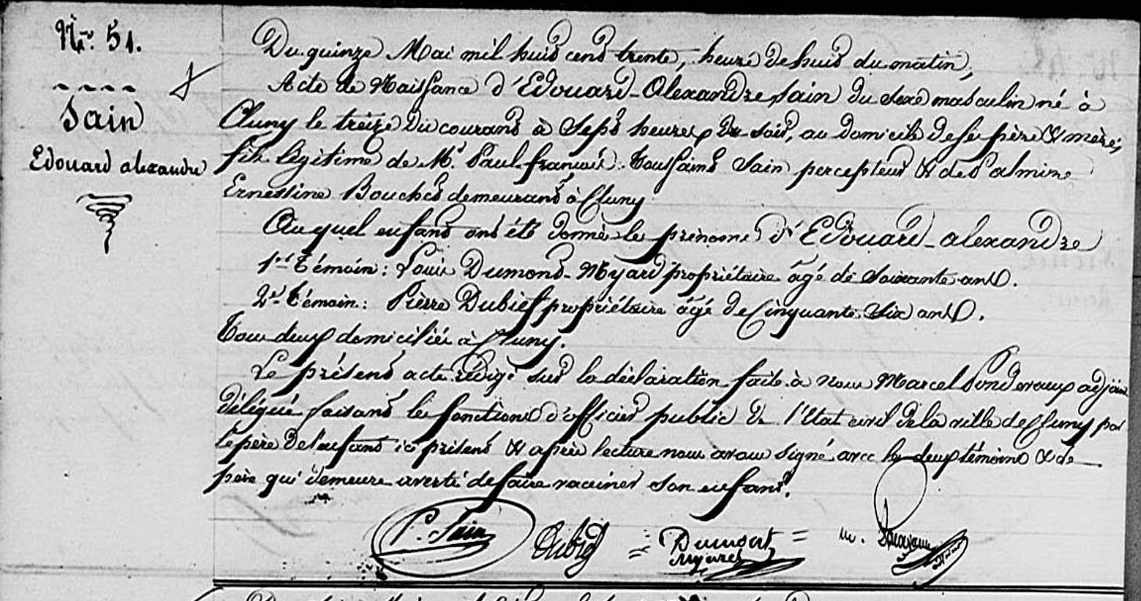 N.° 51.
Sain
Edouard alexandre
Du quinze Mai mil huit cent trente, heure de huit du matin,
Acte de Naissance d'Edouard-Alexandre Sain du sexe masculin né à
Cluny le treize du courant à Sept heures du soir, au domicile de ses père & mère,
fils légitime de Mr Paul françois Toussaint Sain percepteur & de Palmire
Ernestine Bouches demeurant à Cluny
Au quel enfant ont été donné les prénoms d'Edouard-alexandre
1er Témoin: Louis Dumont-Myard propriétaire âgé de soixante ans.
2e Témoin: Pierre Dubief propriétaire âgé de Cinquante Six ans.
Tous deux domiciliés à Cluny.
Le présent acte rédigé sur la déclaration faite à nous Marcel adjoint
délégué faisant les fonctions d'officier public de l'Etat civil de la ville de Cluny par
le père de l'enfant ici présent & après lecture nous avons signé avec les deux témoins & de
père qui demeure averti de faire vacciner son enfant.
P. Sain Dubief = Dumont = m.
Myard